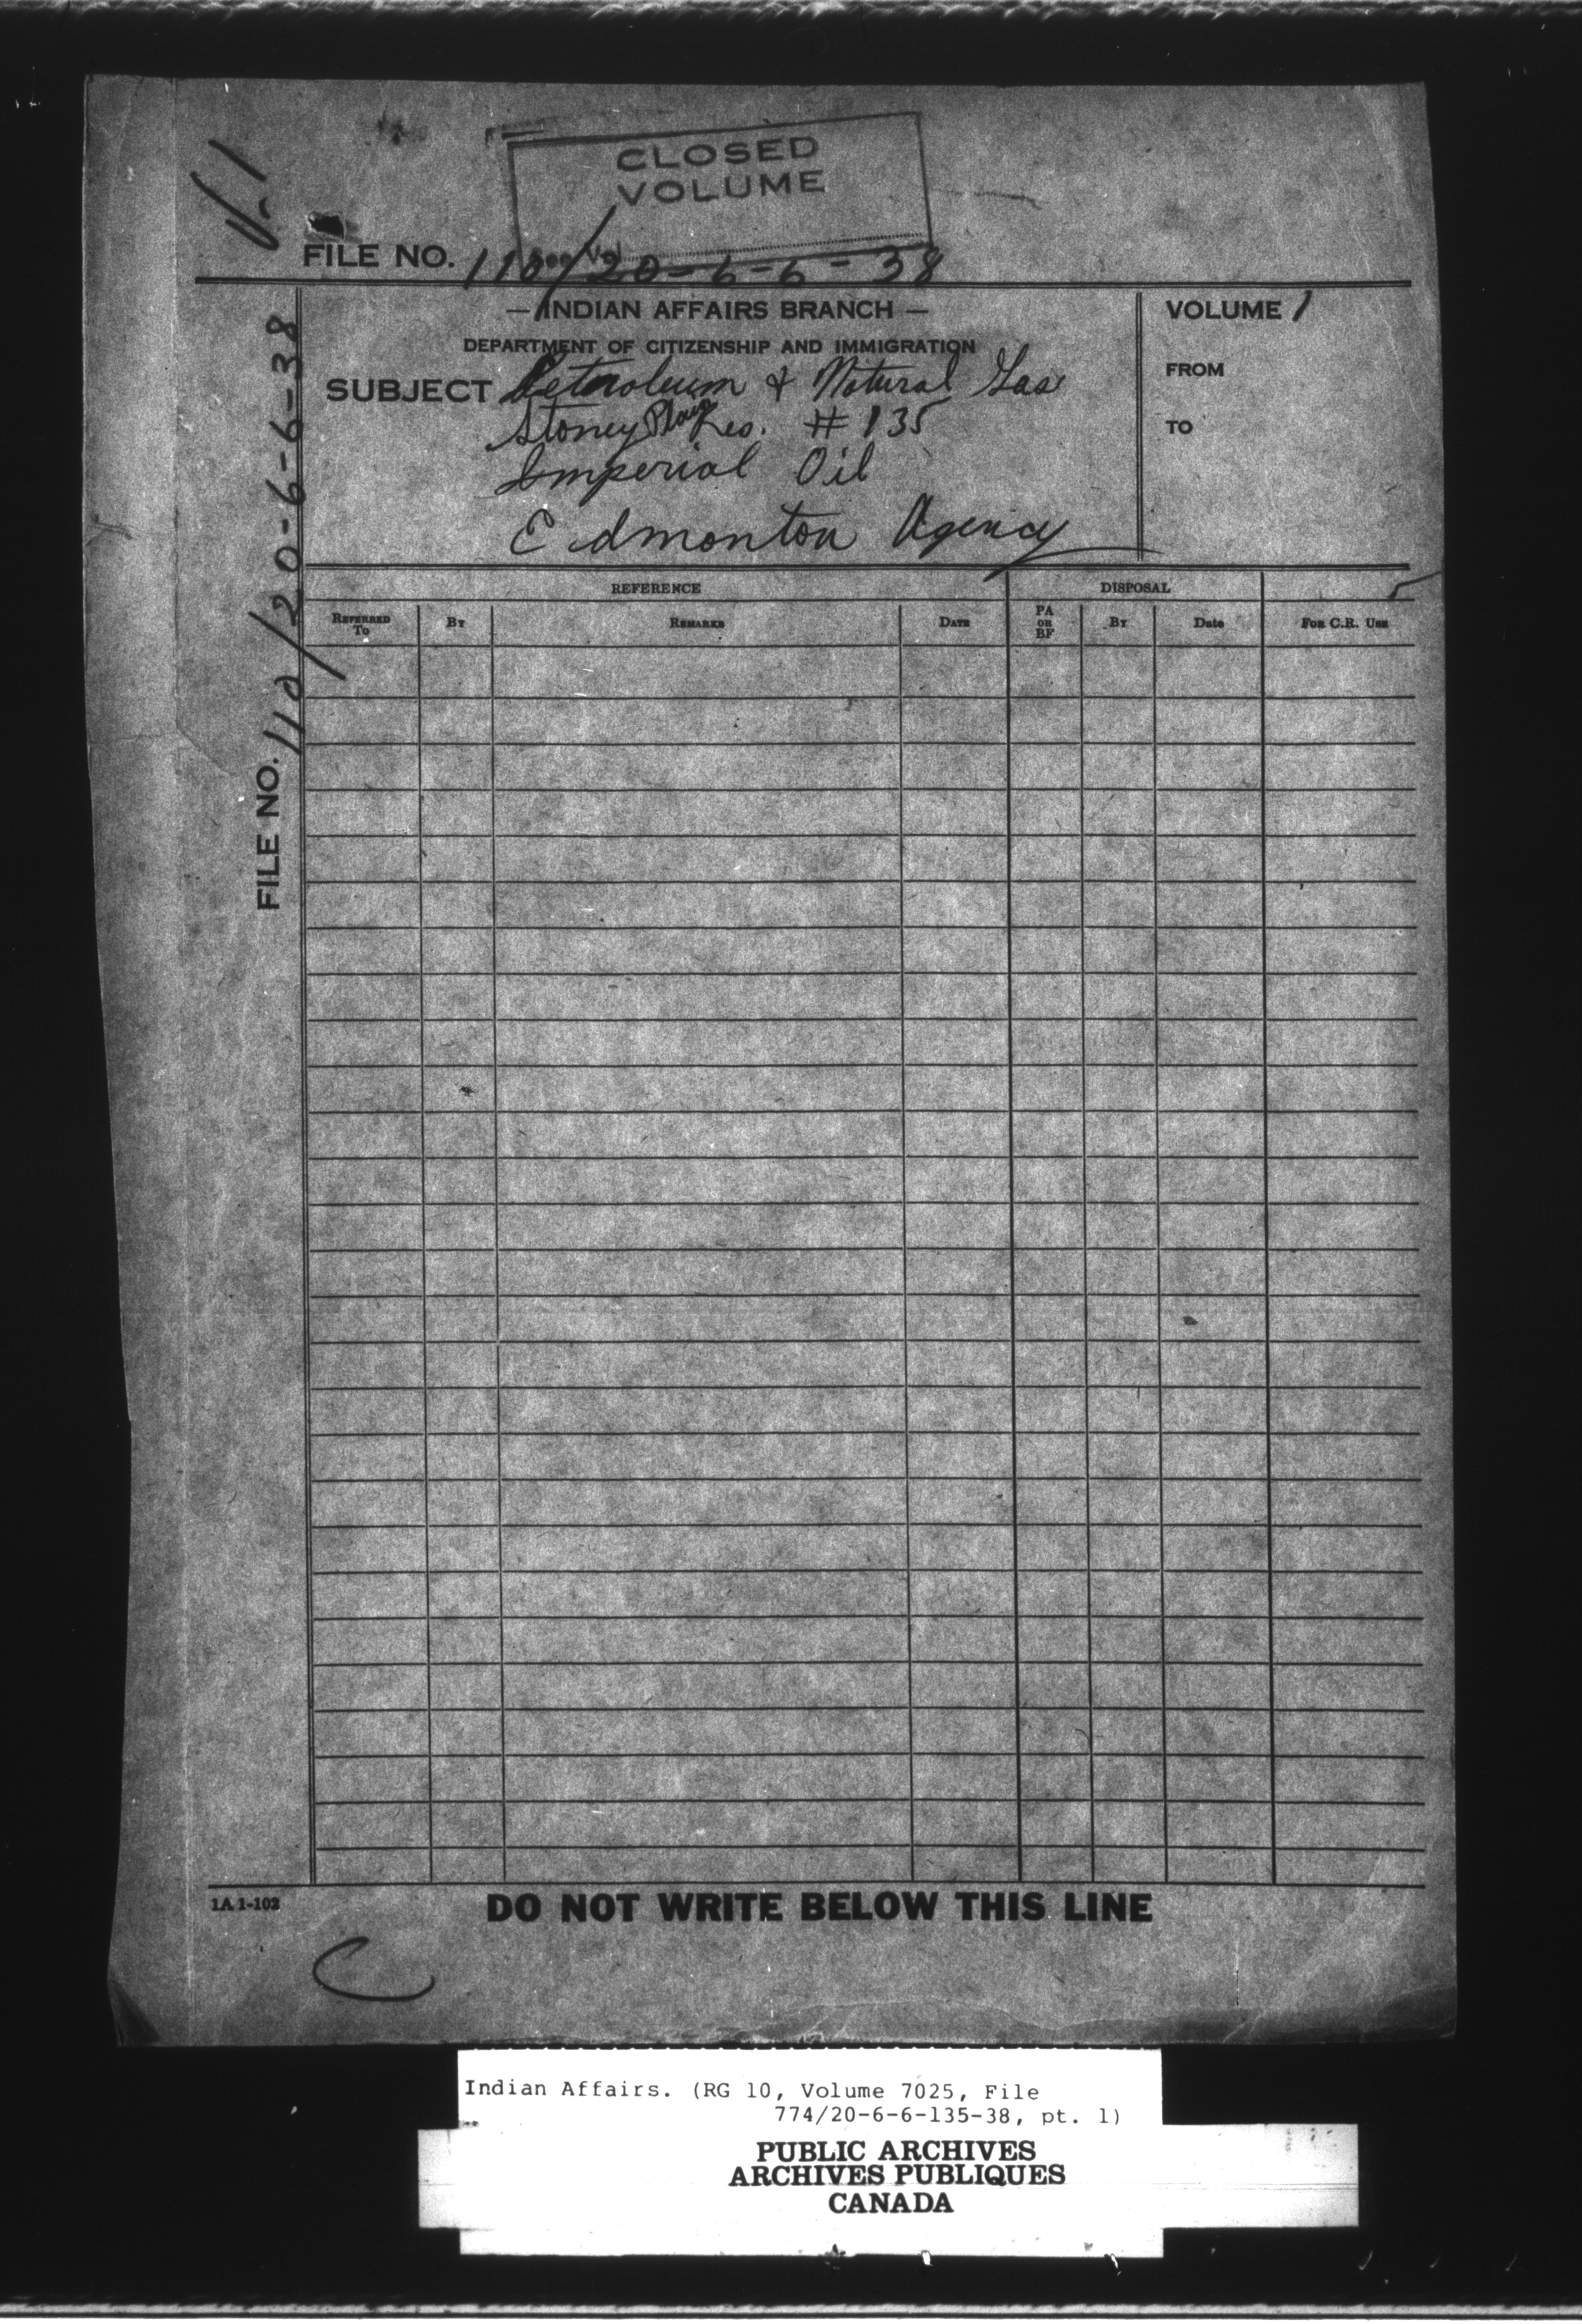 V.1
CLOSED
VOLUME
See Vol
FILE NO. 110/20-6-6-38
— INDIAN AFFAIRS BRANCH —
DEPARTMENT OF CITIZENSHIP AND IMMIGRATION
SUBJECT Petroleum & Natural Gas
Stoney Plain Res. # 135
Imperial Oil
Edmonton Agency
VOLUME 1
FROM
TO
FILE NO. 110/20-6-6-38
REFERENCE
DISPOSAL
REFERRED TO
BY
REMARKS
DATE
PA OR BF
BY
Date
FOR C.R. USE
1A 1-102
DO NOT WRITE BELOW THIS LINE
C
Indian Affairs. (RG 10, Volume 7025, File
774/20-6-6-135-38, pt. 1)
PUBLIC ARCHIVES
ARCHIVES PUBLIQUES
CANADA